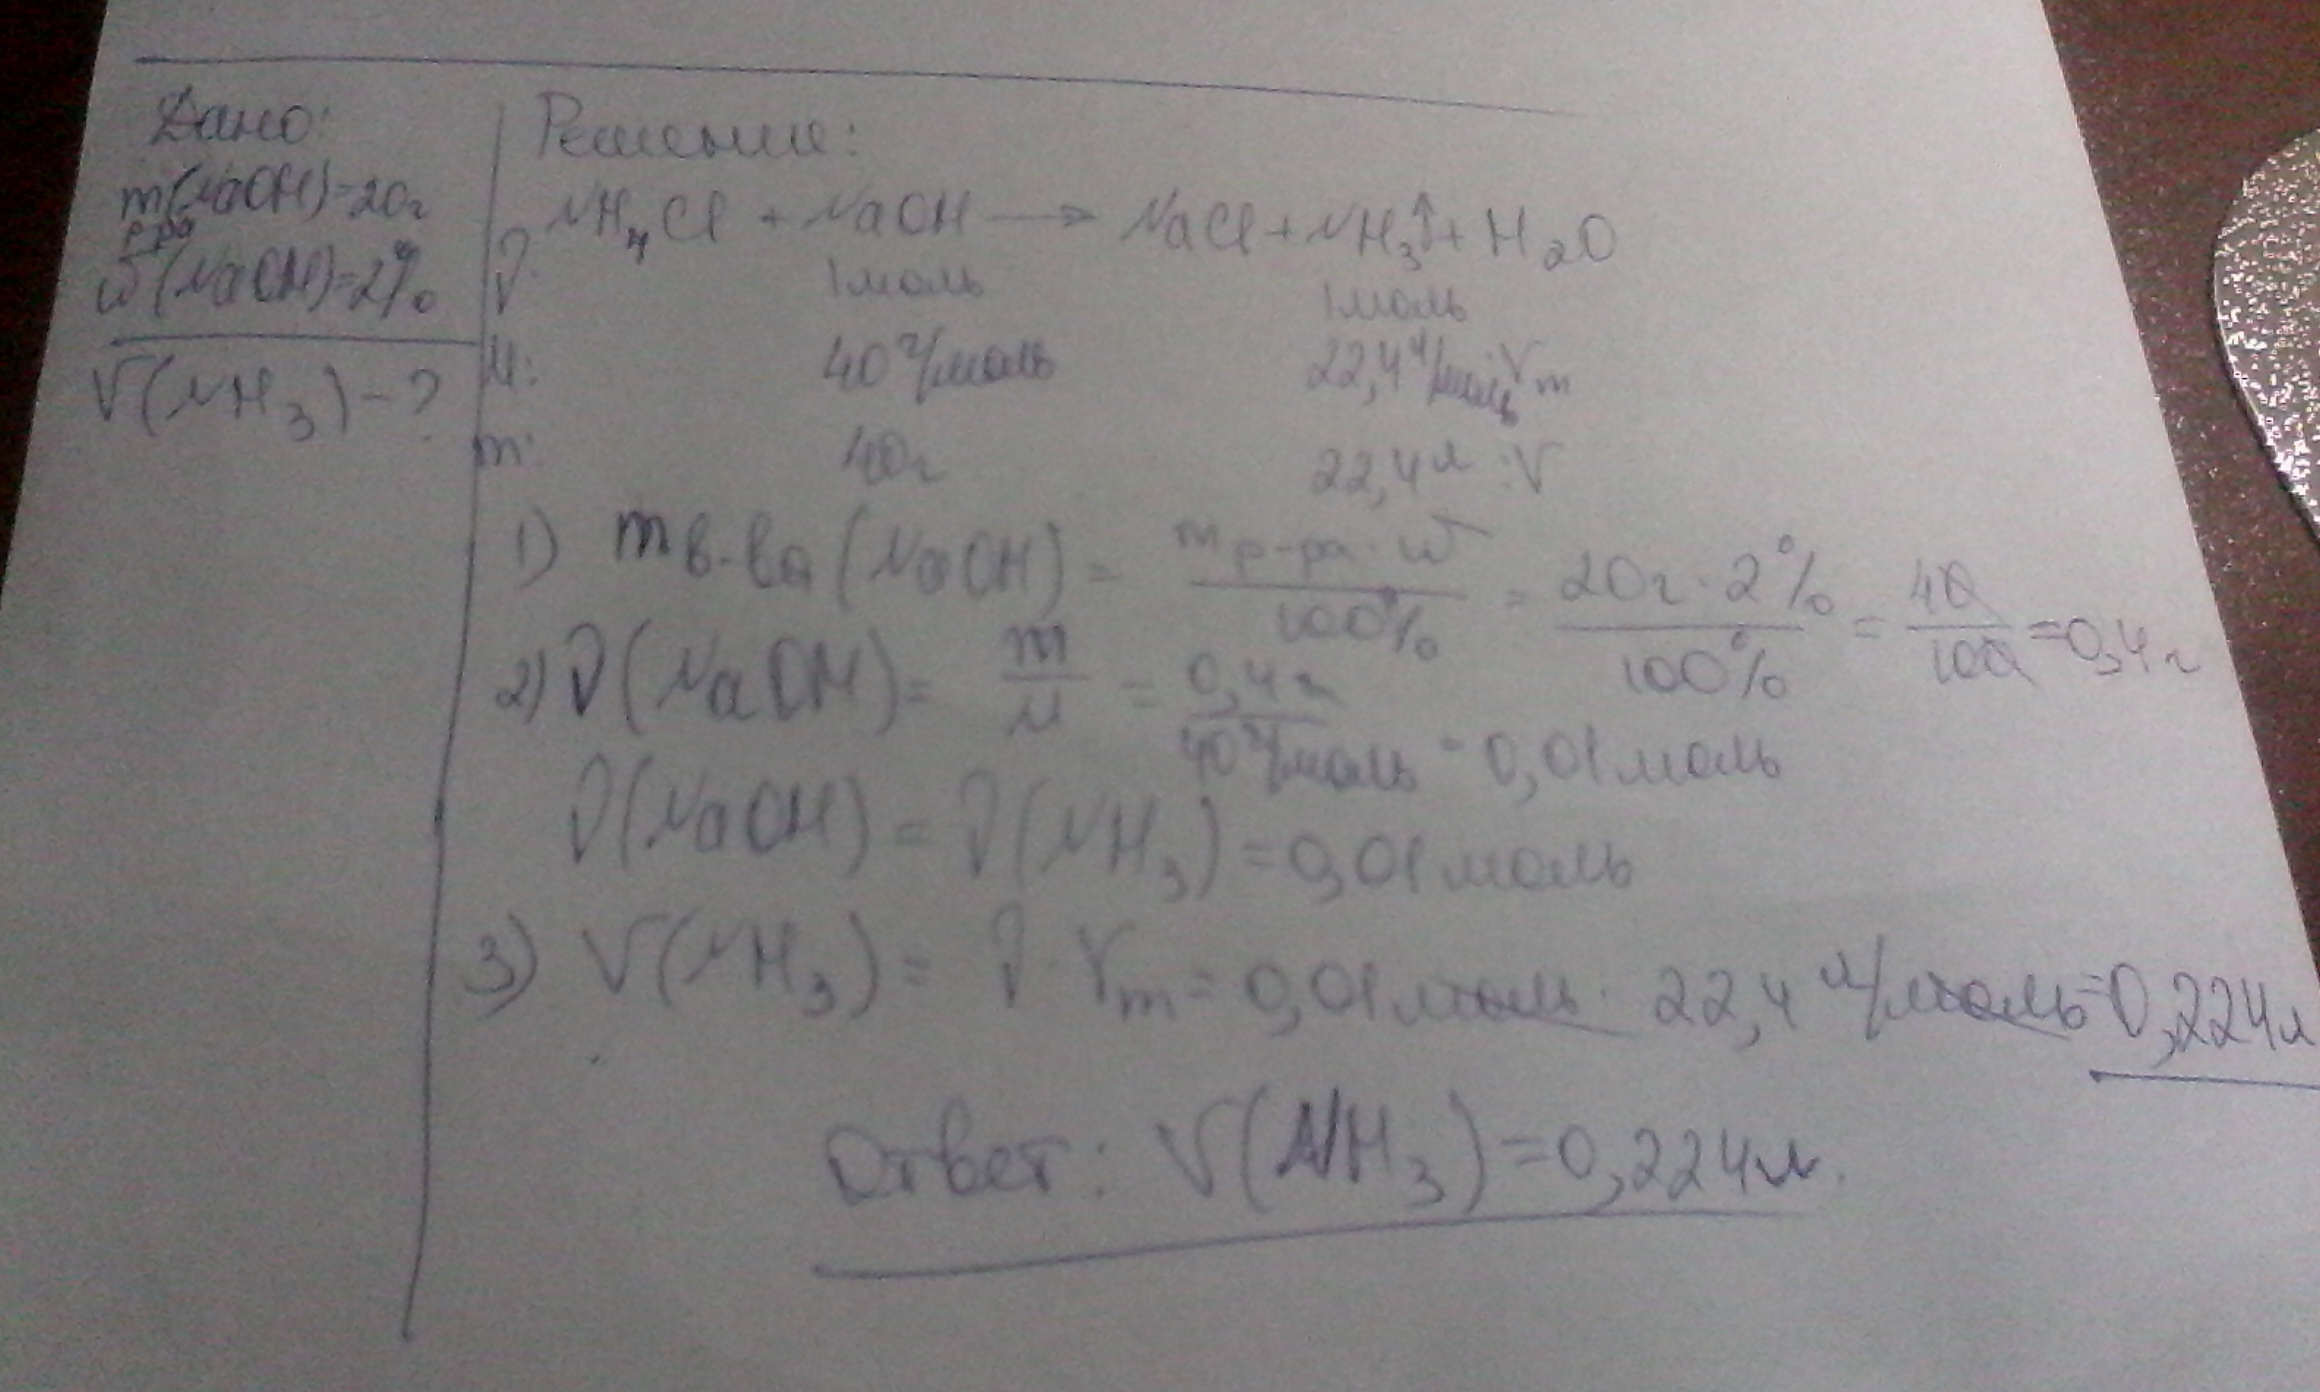 Дано:
m р-ра (NaOH)=20г
ω(NaOH)=2%
V(NH₃)-?
Решение:
NH₄Cl + NaOH → NaCl + NH₃↑ + H₂O
ν: 1моль 1моль
M: 40 г/моль 22,4 л/моль :Vm
m: 40г 22,4л :V
1) m в-ва (NaOH) = m р-ра · ω / 100% = 20г · 2% / 100% = 40/100 = 0,4г
2) ν(NaOH) = m/M = 0,4г / 40 г/моль = 0,01моль
ν(NaOH) = ν(NH₃) = 0,01моль
3) V(NH₃) = ν · Vm = 0,01моль · 22,4 л/моль = 0,224л
Ответ: V(NH₃) = 0,224л.